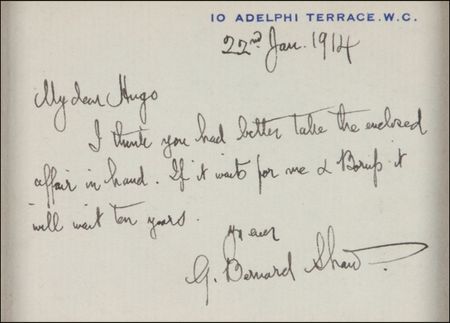 10 ADELPHI TERRACE. W.C.
22nd Jan. 1914
My dear Hugo
I think you had better take the enclosed
affair in hand. If it waits for me & Borup it
will wait ten years.
yrs ever
G. Bernard Shaw